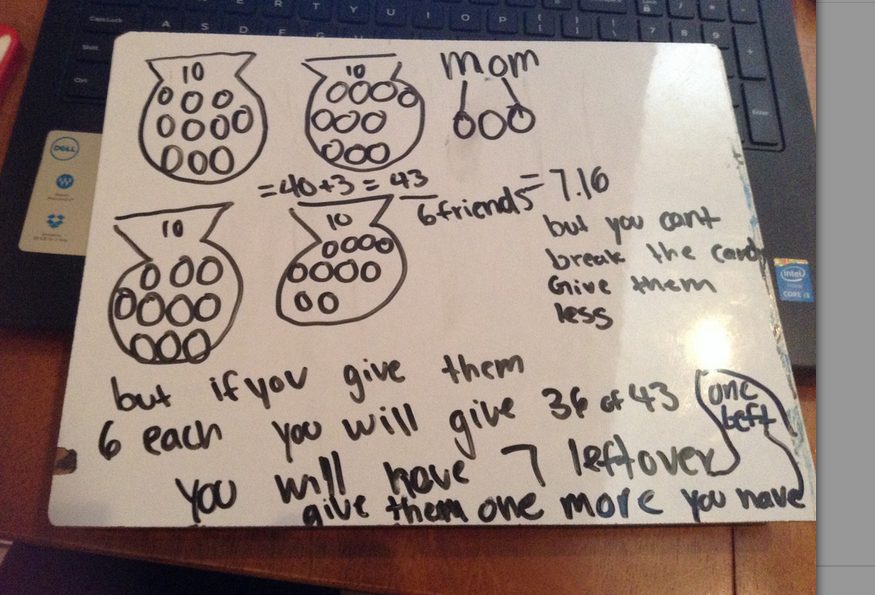 10
10
mom
=40+3=43
6 friends
=7.16
10
10
but you cant
break the candy
Give them
less
but if you give them
6 each you will give 36 of 43
you will have 7 leftover
give them one more you have
one
left
DELL
intel
CORE i3